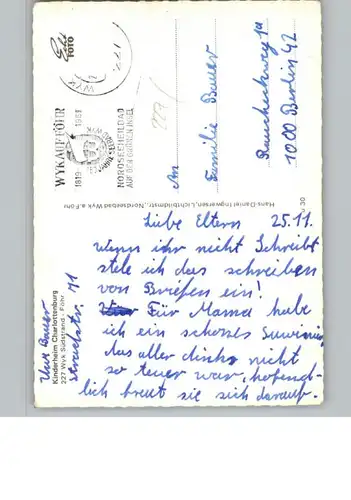 Liebe Eltern 25.11.
wenn ihr nicht Schreibt
stele ich das schreiben
von Briefen ein!
Für Mama habe
ich ein schönes
das aller dinks nicht
so teuer war, hofend-
lich freut sie sich darauf.
Uwe Bauer
Kinderheim Charlottenburg
227 Wyk Südstrand - Föhr
Strandstr. 11
Foto
WYK
WYK AUF FÖHR
1819 1969
NORDSEEHEILBAD
AUF DER GRÜNEN INSEL
227
An
Familie Bauer
1000 Berlin 42
Hans-Daniel Ingwersen, Lichtbildmstr., Nordseebad Wyk a. Föhr
30